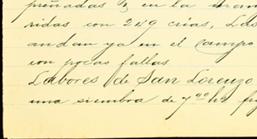 en la
ridas con 249 crías, Las
andan ya en el campo
con pocas fallas
Labores de San Lorenzo
una siembra de